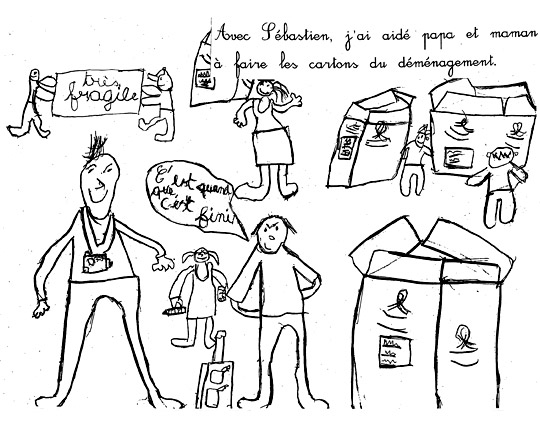 Avec Sébastien, j'ai aidé papa et maman
à faire les cartons du déménagement.
très
fragile
C'est quand
que
c'est
fini